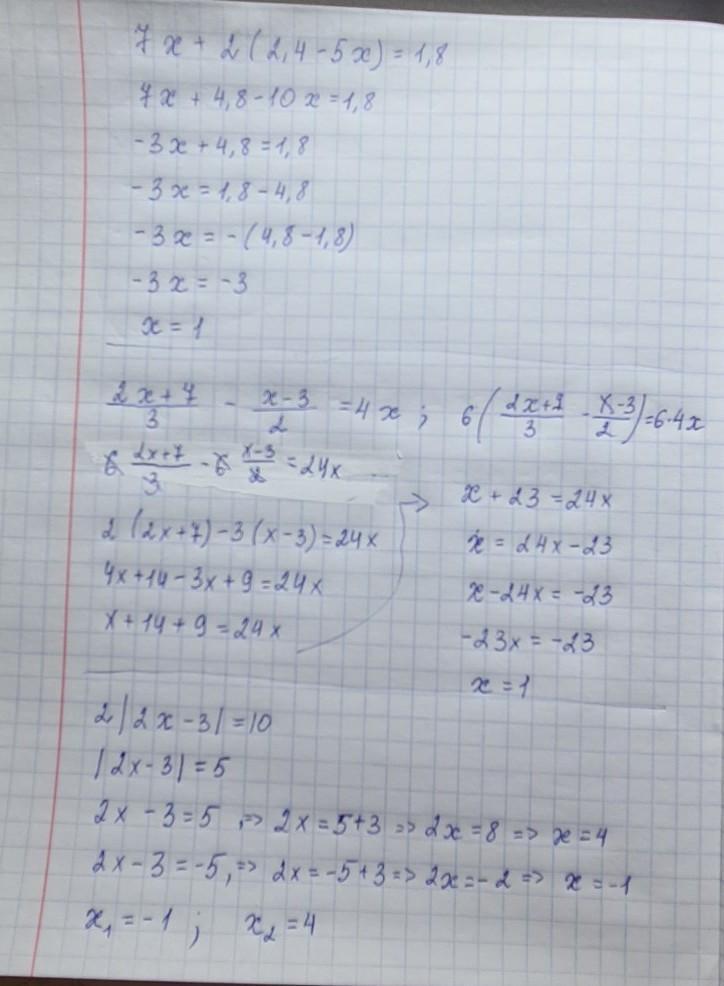 7x + 2(2,4-5x) = 1,8
7x + 4,8-10x = 1,8
-3x + 4,8 = 1,8
-3x = 1,8 - 4,8
-3x = -(4,8-1,8)
-3x = -3
x = 1
(2x+7)/3 - (x-3)/2 = 4x ; 6((2x+7)/3 - (x-3)/2) = 6·4x
6 (2x+7)/3 - 6 (x-3)/2 = 24x
2(2x+7)-3(x-3)=24x
4x+14-3x+9=24x
x+14+9=24x
→ x+23=24x
x = 24x-23
x-24x = -23
-23x = -23
x = 1
2|2x-3|=10
|2x-3|=5
2x-3=5, => 2x=5+3 => 2x=8 => x=4
2x-3=-5, => 2x=-5+3 => 2x=-2 => x=-1
x₁=-1 ; x₂=4